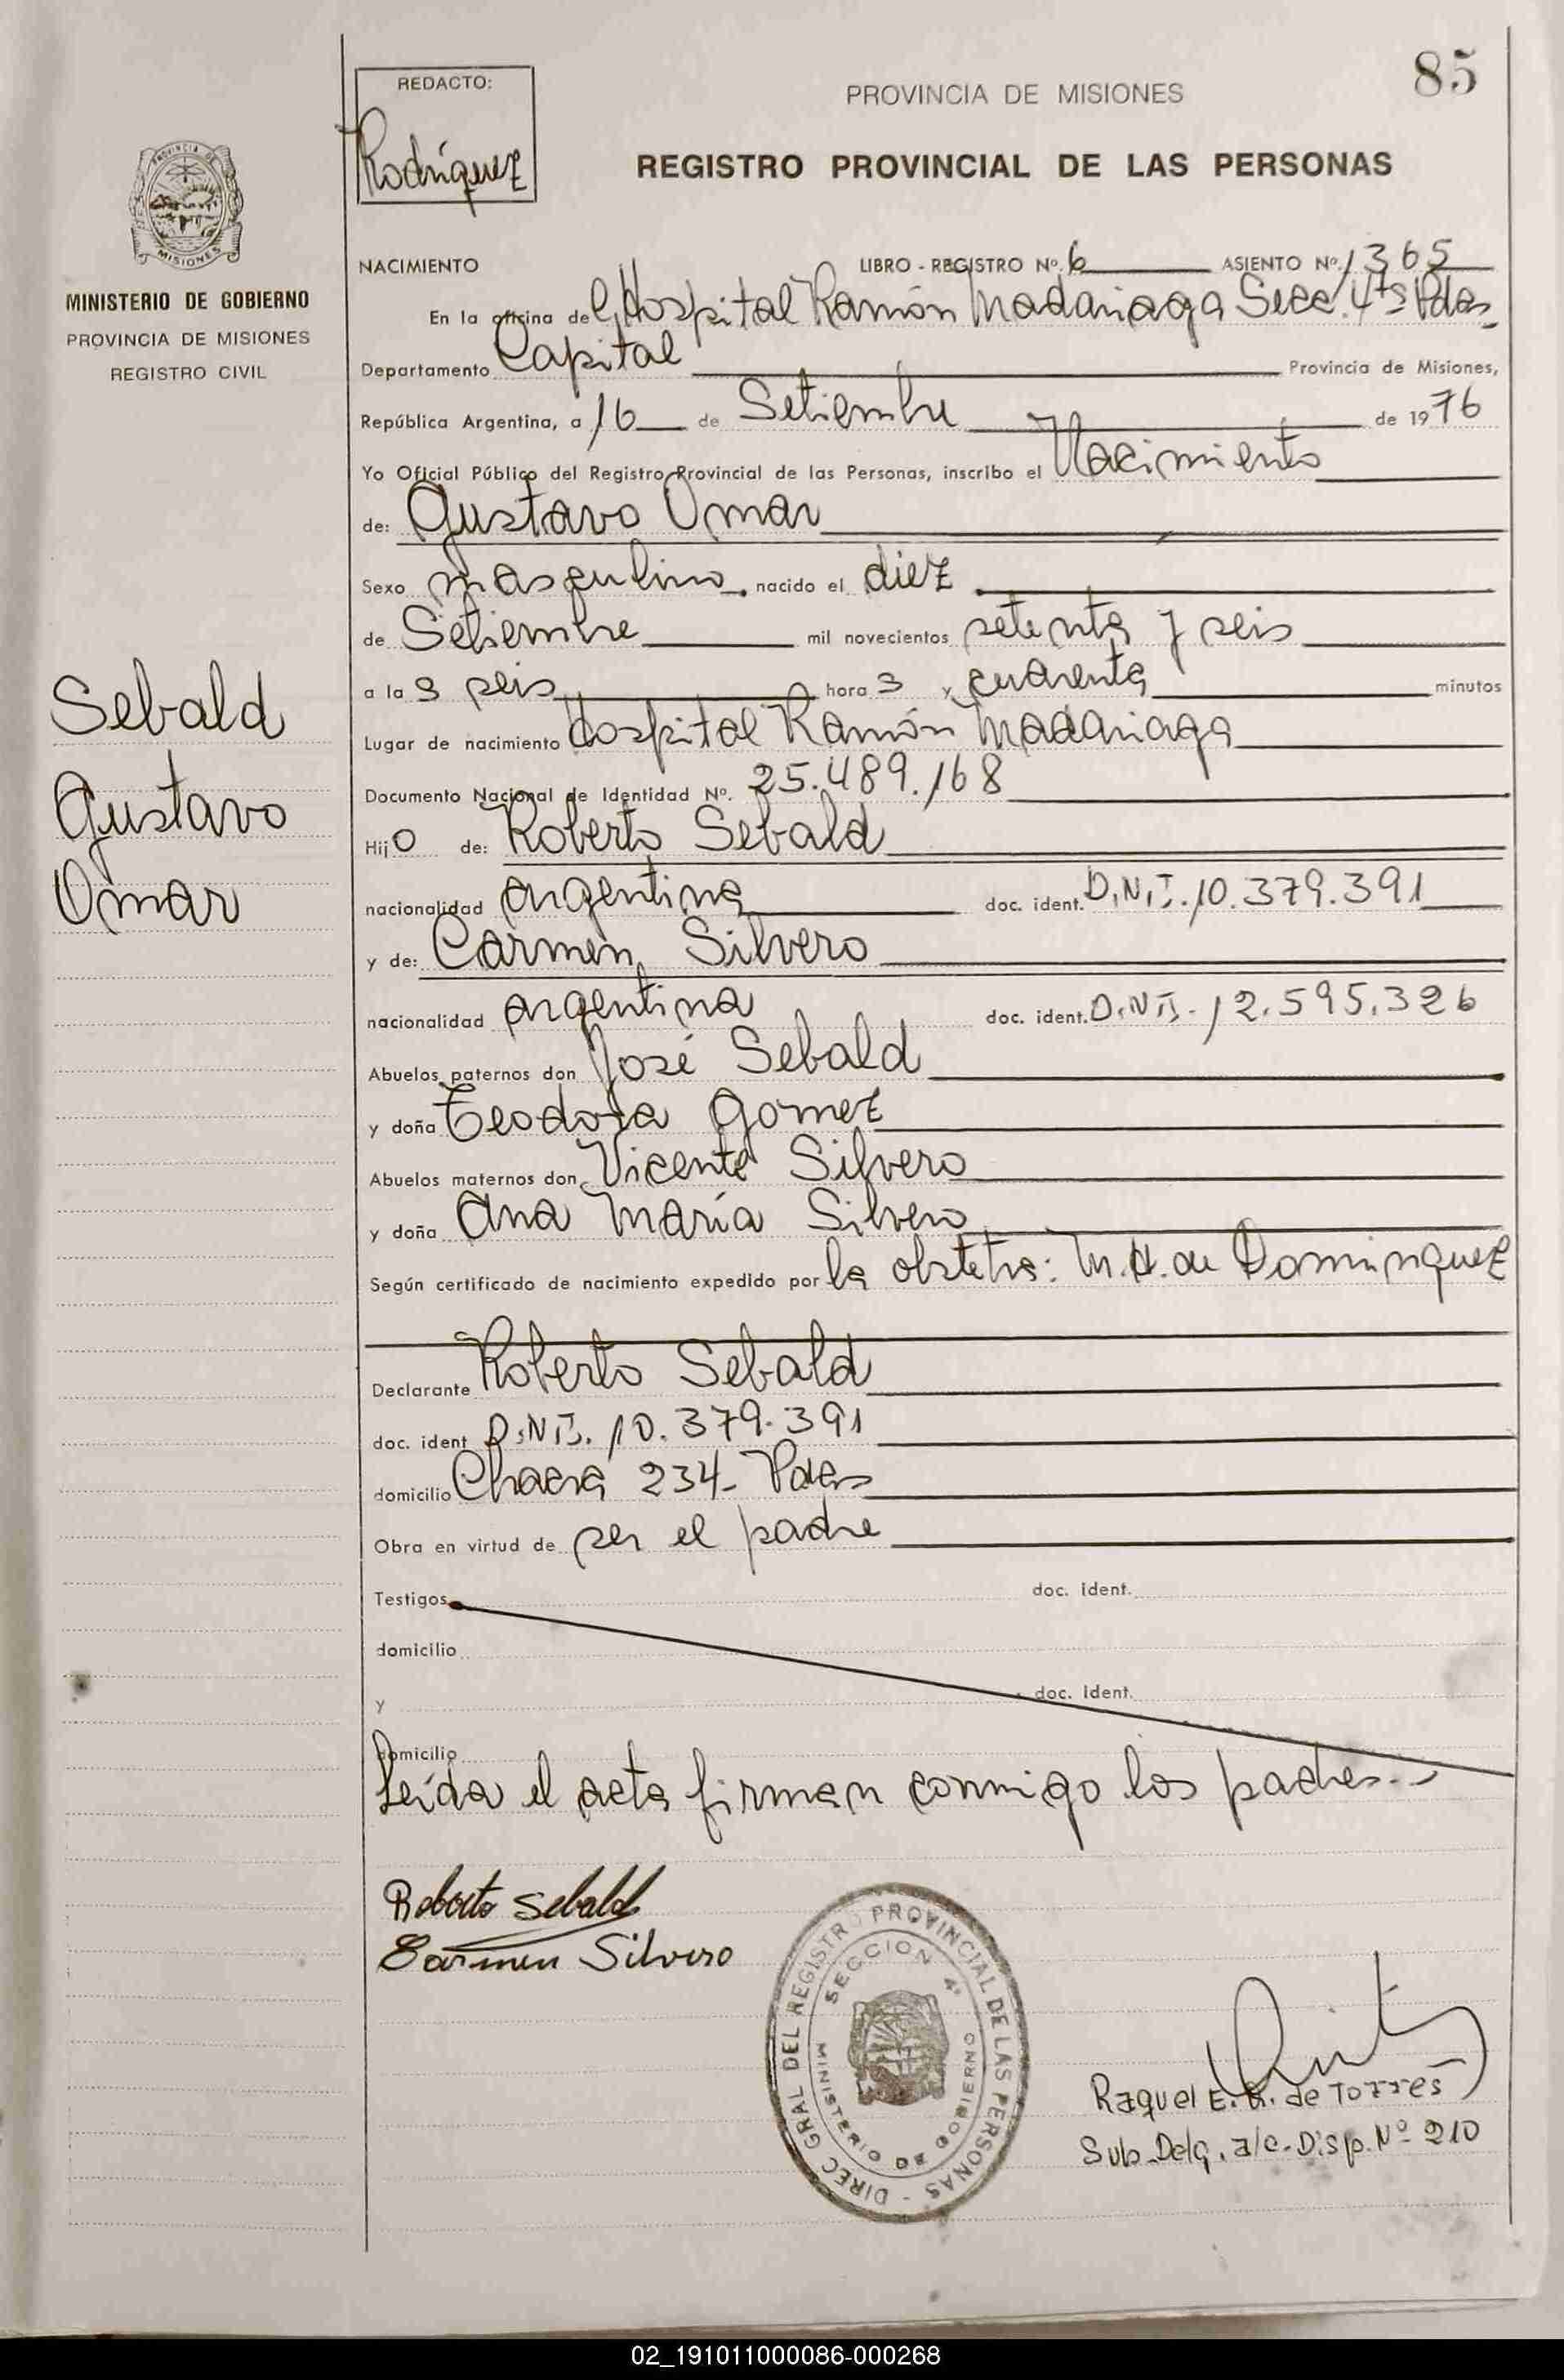 85
REDACTO:
Rodríguez
PROVINCIA DE MISIONES
REGISTRO PROVINCIAL DE LAS PERSONAS
PROVINCIA DE
MISIONES
MINISTERIO DE GOBIERNO
PROVINCIA DE MISIONES
REGISTRO CIVIL
Sebald
Gustavo
Omar
NACIMIENTO LIBRO - REGISTRO Nº. 6 ASIENTO Nº. 1365
En la oficina del Hospital Ramón Madariaga Secc. 4ta Pdas
Departamento Capital Provincia de Misiones,
República Argentina, a 16 de Setiembre de 1976
Yo Oficial Público del Registro Provincial de las Personas, inscribo el Nacimiento
de: Gustavo Omar
Sexo masculino. nacido el diez
de Setiembre mil novecientos setenta y seis
a las seis horas y cuarenta minutos
Lugar de nacimiento Hospital Ramón Madariaga
Documento Nacional de Identidad Nº. 25.489.168
Hijo de: Roberto Sebald
nacionalidad argentina doc. ident. D.N.I. 10.379.391
y de: Carmen Silvero
nacionalidad argentina doc. ident. D.N.I. 12.595.326
Abuelos paternos don José Sebald
y doña Teodora Gomez
Abuelos maternos don Vicente Silvero
y doña Ana María Silvero
Según certificado de nacimiento expedido por la obstetra: M.H. de Dominguez
Declarante Roberto Sebald
doc. ident D.N.I. 10.379.391
domicilio Chacra 234- Pdas
Obra en virtud de ser el padre
Testigos doc. ident.
domicilio
y doc. ident.
domicilio
Leída el acta firman conmigo los padres..
Roberto Sebald
Carmen Silvero
DIREC GRAL DEL REGISTRO PROVINCIAL DE LAS PERSONAS -
SECCION 4º
MINISTERIO DE GOBIERNO
Raquel E. R. de Torres
Sub-Delg. a/c. Disp. Nº 210
02_191011000086-000268